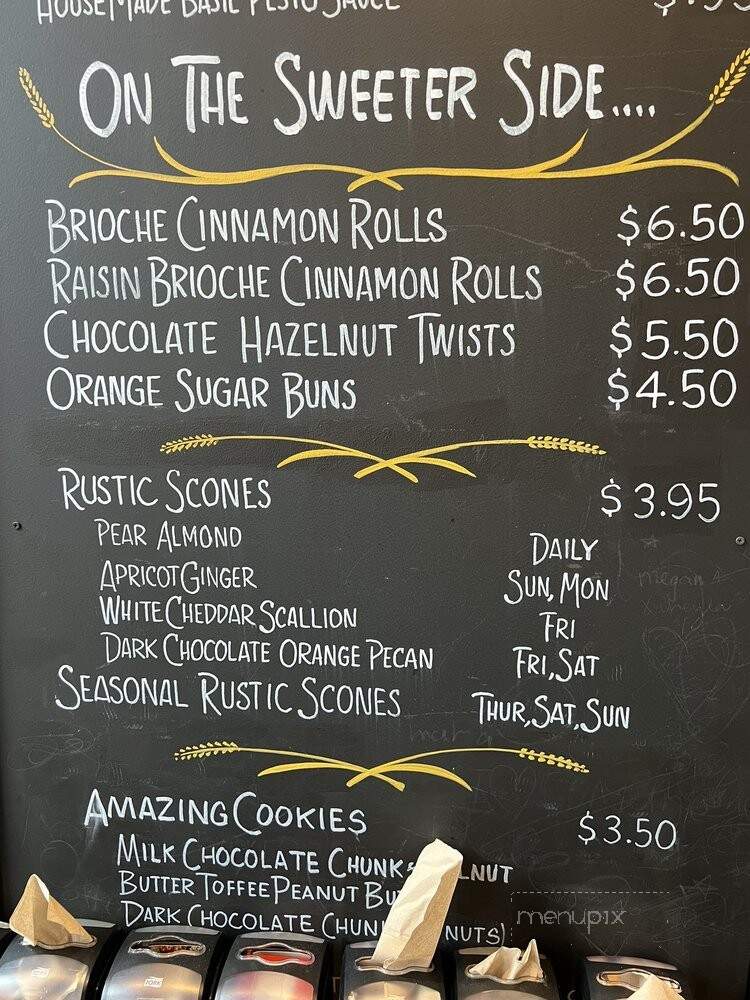 HOUSEMADE BASIL PESTO SAUCE
ON THE SWEETER SIDE....
BRIOCHE CINNAMON ROLLS $6.50
RAISIN BRIOCHE CINNAMON ROLLS $6.50
CHOCOLATE HAZELNUT TWISTS $5.50
ORANGE SUGAR BUNS $4.50
RUSTIC SCONES $3.95
PEAR ALMOND DAILY
APRICOT GINGER SUN, MON
WHITE CHEDDAR SCALLION FRI
DARK CHOCOLATE ORANGE PECAN FRI, SAT
SEASONAL RUSTIC SCONES THUR, SAT, SUN
AMAZING COOKIES $3.50
MILK CHOCOLATE CHUNK LNUT
BUTTER TOFFEE PEANUT BU
DARK CHOCOLATE CHUN NUTS)
menupix
TORK